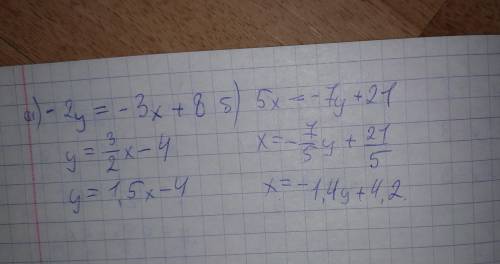 а) -2y = -3x + 8
y = 3/2 x - 4
y = 1,5x - 4
б) 5x = -7y + 21
x = -7/5 y + 21/5
x = -1,4y + 4,2